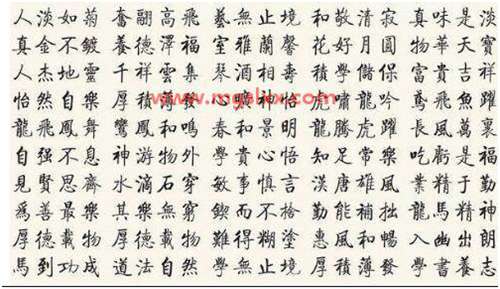 人淡如菊 奮翮高飛 藝無止境 和敬清寂 真味是淡
真金不鍍 養德澤福 室雅蘭馨 花好月圓 物華天寶
人杰地靈 千祥雲集 琴酒相壽 積學儲保 富貴吉祥
怡然自樂 厚積薄發 神怡 虎嘯龍吟 鳶飛魚躍
龍飛鳳舞 鸞鳳和鳴 春和景明 龍騰虎躍 長風萬裏
自强不息 神游物外 學貴心悟 知足常樂 吃虧是福
見賢思齊 水滴石穿 敏事慎言 漢唐雄風 業精于勤
爲善最樂 其樂無窮 鍥而不捨 勤能補拙 龍馬精神
厚德載物 厚德載物 難得糊塗 惠風和暢 入幽出朗
馬到功成 道法自然 學無止境 厚積薄發 學書養志